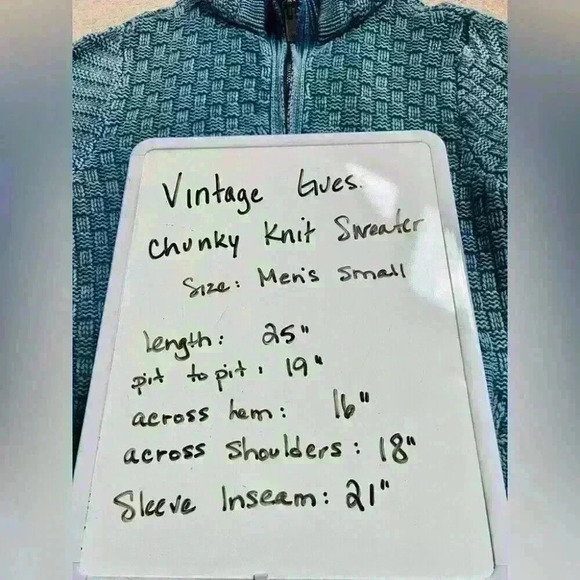 Vintage Gues.
Chunky Knit Sweater
Size: Men's Small
length: 25"
pit to pit: 19"
across hem: 16"
across Shoulders: 18"
Sleeve Inseam: 21"